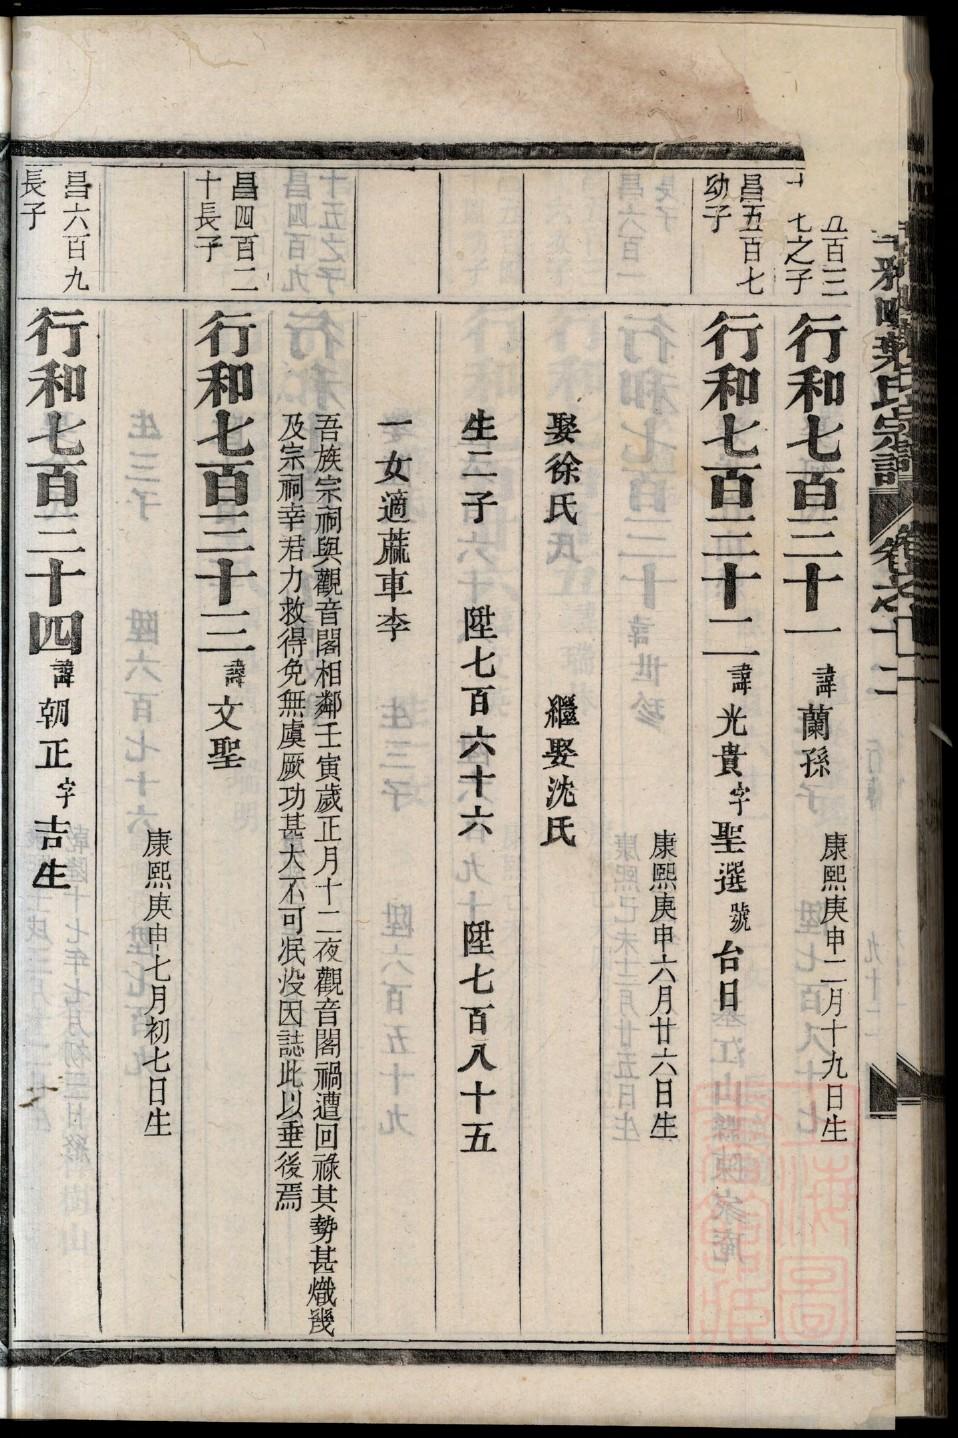 葉氏宗譜
五百三
七之子
行和七百三十一 諱蘭孫 康熙庚申二月十九日生
昌五百七
幼子
行和七百三十二 諱光貴字聖選號台日
康熙庚申六月廿六日生
娶徐氏 繼娶沈氏
生二子 陞七百六十六 陞七百八十五
一女適蓏車李
吾族宗祠與觀音閣相鄰壬寅歲正月十二夜觀音閣禍遭回祿其勢甚熾幾
及宗祠幸君力救得免無虞厥功甚大不可泯沒因誌此以垂後焉
昌四百二
十長子
行和七百三十三 諱文聖
康熙庚申七月初七日生
昌六百九
長子
行和七百三十四 諱朝正字吉生